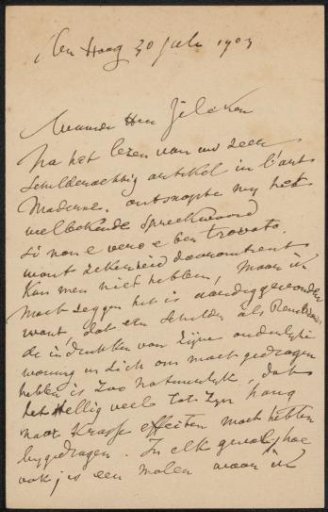 Den Haag 30 July 1903
Waarde Heer Zilcken
Na het lezen van uw zeer
schilderachtig artikel in l'art
Moderne, ontsnapte my het
welbekende spreekwoord
si non e vero e ben trovato.
want zekerheid daaromtrent
kan men niet hebben, maar ik
moet zeggen het is aardig gevonden
want dat een schilder als Rembran
de indrukken van zijne ouderlijke
woning in zich om moet gedragen
hebben is zoo natuurlijk, dat
het stellig veel tot zyn hang
naar krasse effecten moet hebben
bygedragen. In elk geval, hoe
ook, is een molen waar ik